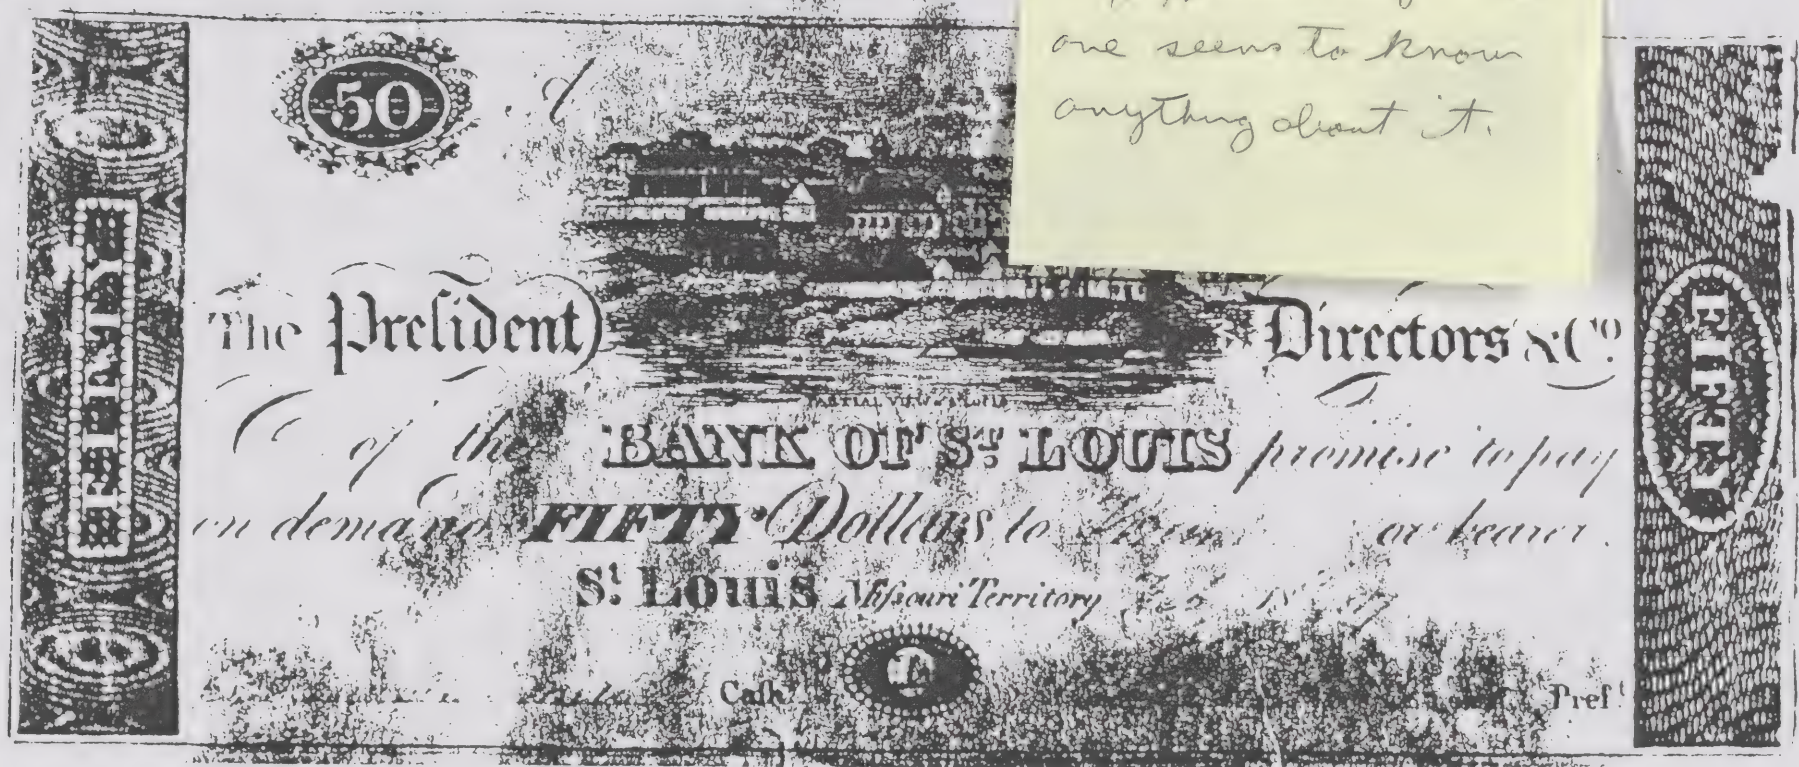 one seems to know
anything about it.
50
FIFTY
The Preſident
Directors & Co.
of the BANK OF St. LOUIS promise to pay
on demand FIFTY Dollars to or bearer.
St. Louis Miſsouri Territory
Caſh.
Preſt.
FIFTY